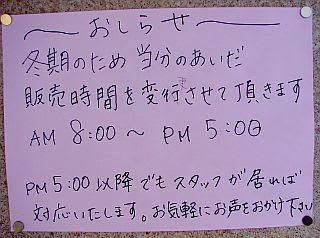 ～おしらせ～
冬期のため 当分のあいだ
販売時間を変行させて頂きます
AM 8:00 ～ PM 5:00
PM 5:00 以降でもスタッフが居れば
対応いたします。お気軽にお声をおかけ下さい